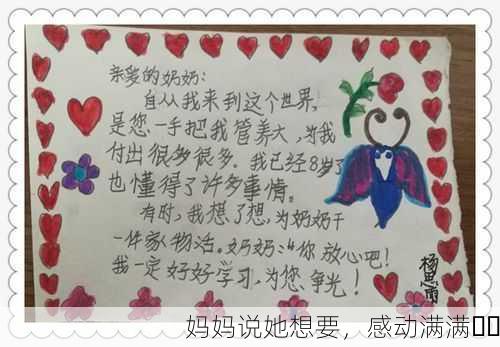 亲爱的奶奶:
自从我来到这个世界,
是您一手把我管养大,为我
付出很多很多。我已经8岁了
也懂得了许多事情。
有时,我想了想,为奶奶干
一件家物活。奶奶:“你放心吧!
我一定好好学习,为您争光!
杨思雨
妈妈说她想要,感动满满